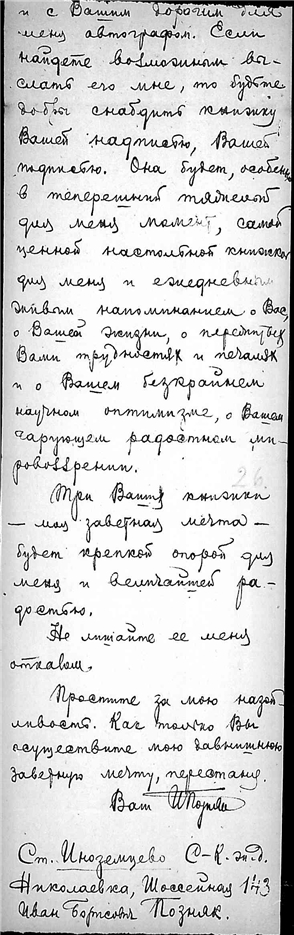 и с Вашим дорогим для
меня автографом. Если
найдете возможным вы-
слать его мне, то будьте
добры снабдить книжку
Вашей надписью, Вашей
подписью. Она будет, особенно
в теперешний тяжелой
для меня момент, самой
ценной настольной книжкой
для меня и ежедневным
живым напоминанием о Вас,
о Вашей жизни, о перенутых
Вами трудностях и печалях
и о Вашем безкрайнем
научном оптимизме, о Вашем
чарующем радостном ми-
ровоззрении.
26.
Три Вашия книжки
— моя заветная мечта —
будет крепкой опорой для
меня и величайшей ра-
достью.
Не лишайте ее меня
отказом.
Простите за мою назой-
ливость. Как только Вы
осуществите мою давнишнюю
заветную мечту, перестану.
Ваш ИПозняк
Ст. Иноземцево С-К. ж.д.
Николаевка, Шоссейная 143
Иван Борисович Позняк.